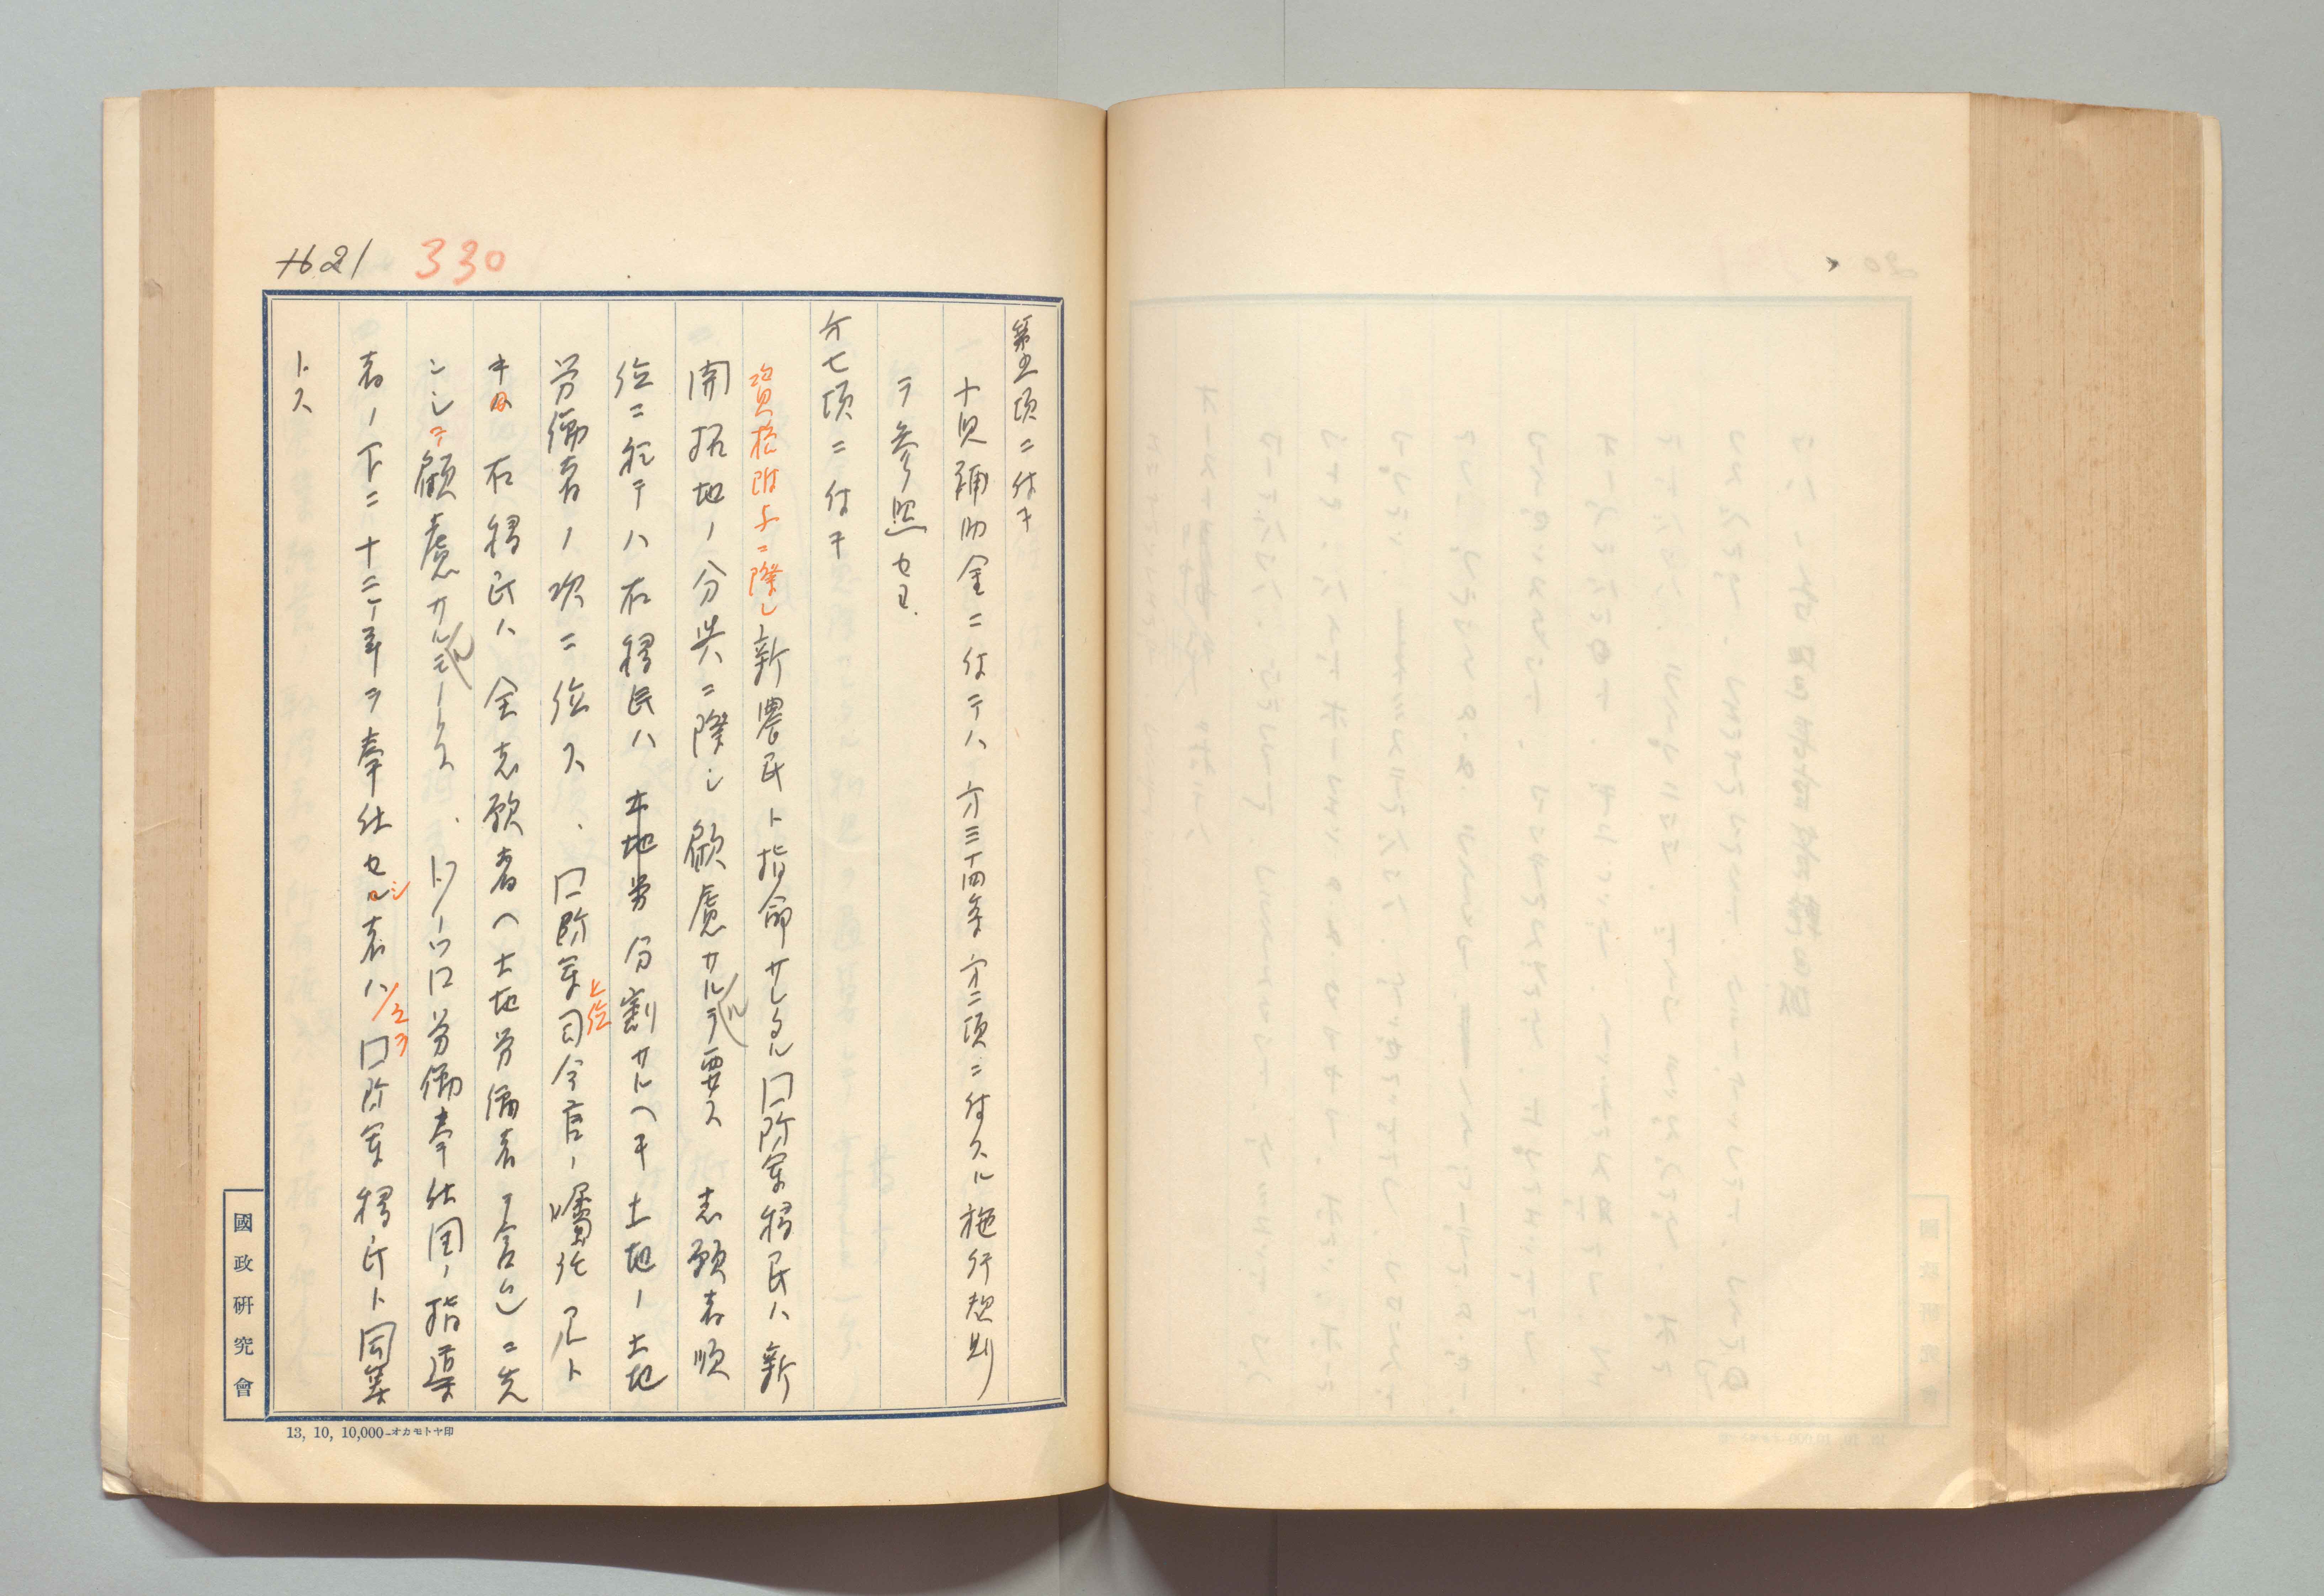 16 21 330
第五項ニ付キ
十貝補助金ニ付テハ 第三十四条第二項ニ付スル施行規則
ヲ参照セヨ.
第七項ニ付キ
資格附与ニ際シ新農民ト指命サレタル国防軍移民ハ新
開拓地ノ分与ニ際シ顧慮サルルヲ要ス 志願者順
位ニ於テハ右移民ハ 本地労 分割サルヘキ土地ノ土地
労働者ノ次ニ位ス. 国防軍上位司令官ノ嘱託アルト
キハ 右移民ハ全志願者(土地労働者ヲ含ム)ニ先
ンシテ顧慮サルルモノトス. トクニ労働奉仕団ノ指導
者ノ下ニ十二年ヲ奉仕セシ者ハ国防軍移民ト同等
トス
國政研究會
13, 10, 10,000-オカモトヤ印